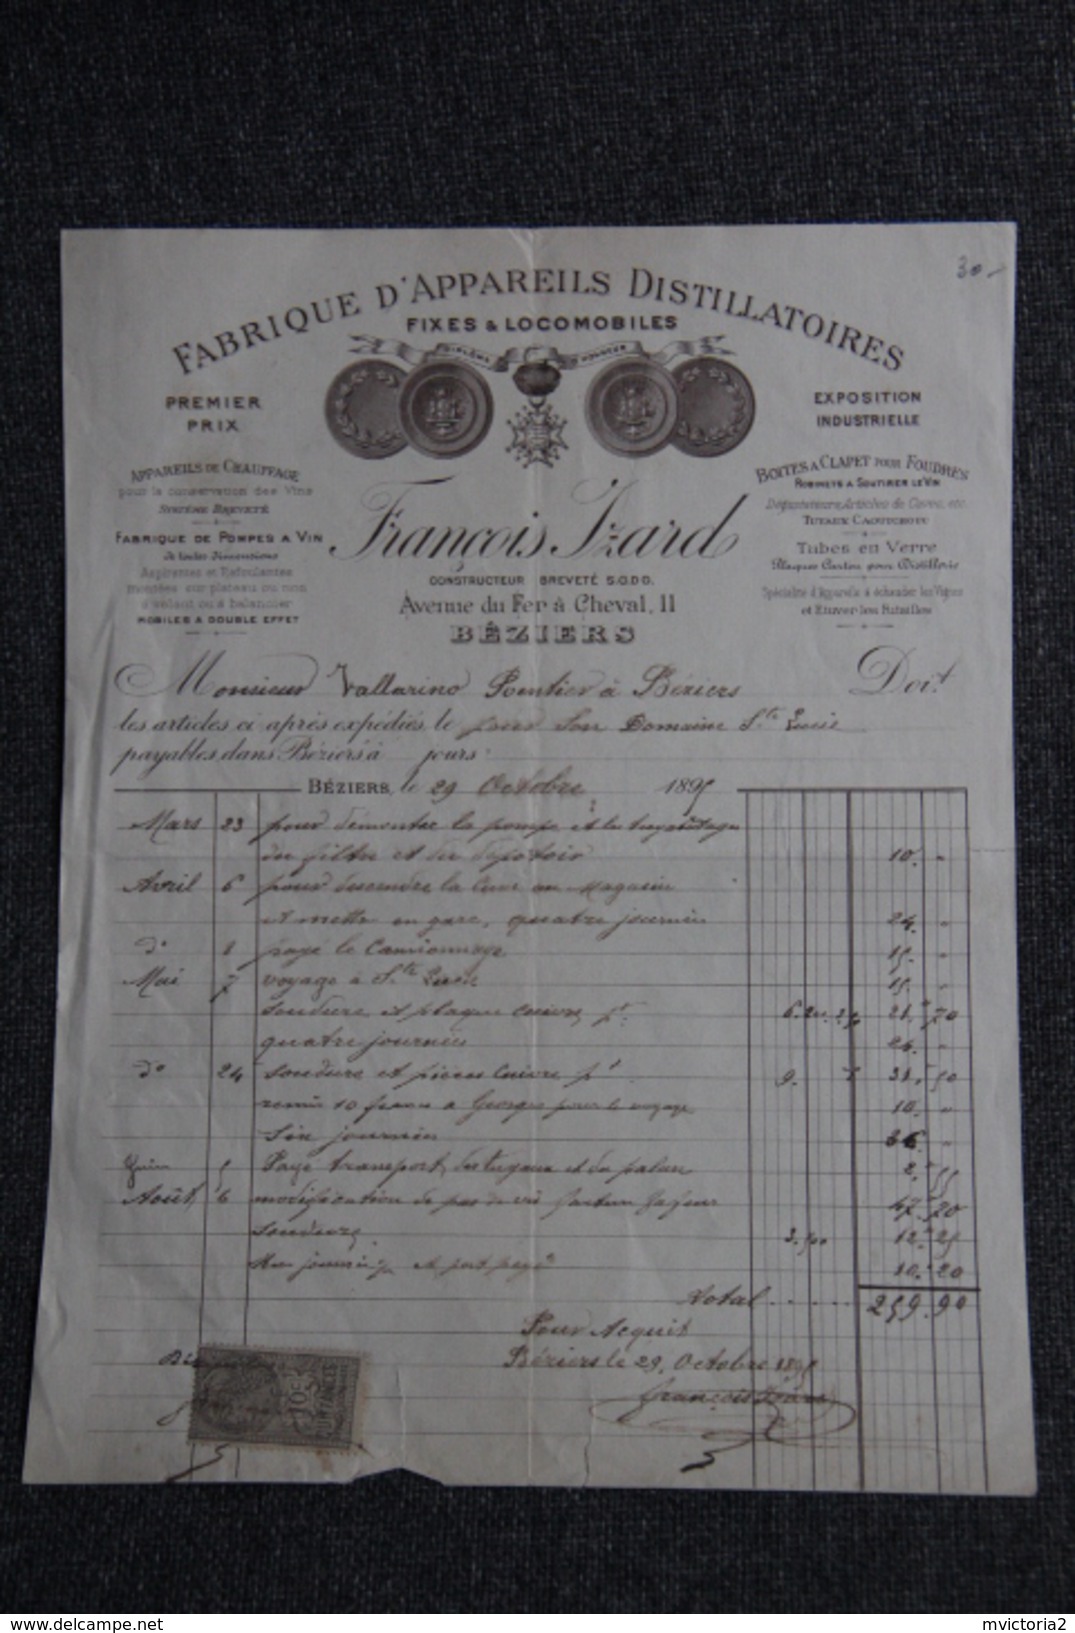 30.-
FABRIQUE D'APPAREILS DISTILLATOIRES
FIXES & LOCOMOBILES
DIPLÔME D'HONNEUR
PREMIER
PRIX
EXPOSITION
INDUSTRIELLE
APPAREILS DE CHAUFFAGE
pour la conservation des Vins
SYSTÈME BREVETÉ
FABRIQUE DE POMPES A VIN
de toutes Dimensions
Aspirantes et Refoulantes
montées sur plateau ou non
à balancier
MOBILES A DOUBLE EFFET
BOITES A CLAPET POUR FOUDRES
ROBINETS A SOUTIRER LE VIN
Articles de Caves, etc.
TUYAUX CAOUTCHOUC
Tubes en Verre
Plaques Carton pour Distillerie
Spécialité d'Appareils à échauder les Vignes
et Etuver les Futailles
François Izard
CONSTRUCTEUR BREVETÉ S.G.D.G.
Avenue du Fer à Cheval, 11
BÉZIERS
Monsieur Vallarino Rentier à Béziers Doit
les articles ci après expédiés le pour son Domaine Ste Lucie
payables dans Béziers à jours
BÉZIERS, le 29 Octobre 1895
Mars 23 pour démonter la pompe et les
du filtre et du 10 "
Avril 6 pour descendre la Cuve au Magasin
et mettre en gare, quatre journées 24 "
do payé le Camionnage 15 "
Mai 7 voyage à Ste Lucie 15 "
soudure et plaque cuivre pr 70
quatre journées 24 "
do 24 soudure et pièces Cuivre pr 9 50
remis 10 francs à Georges pour le voyage 10 "
Six journées 36 "
Juin 5 Payé transport des tuyaux et du palan 2 55
Août 6 modification de 47 20
Soudure 3.50 12 25
et port payé 10 20
Total 259.90
Pour Acquit
Béziers le 29 Octobre 1895
François Izard
10c
QUITTANCES
delcampe.net
mvictoria2